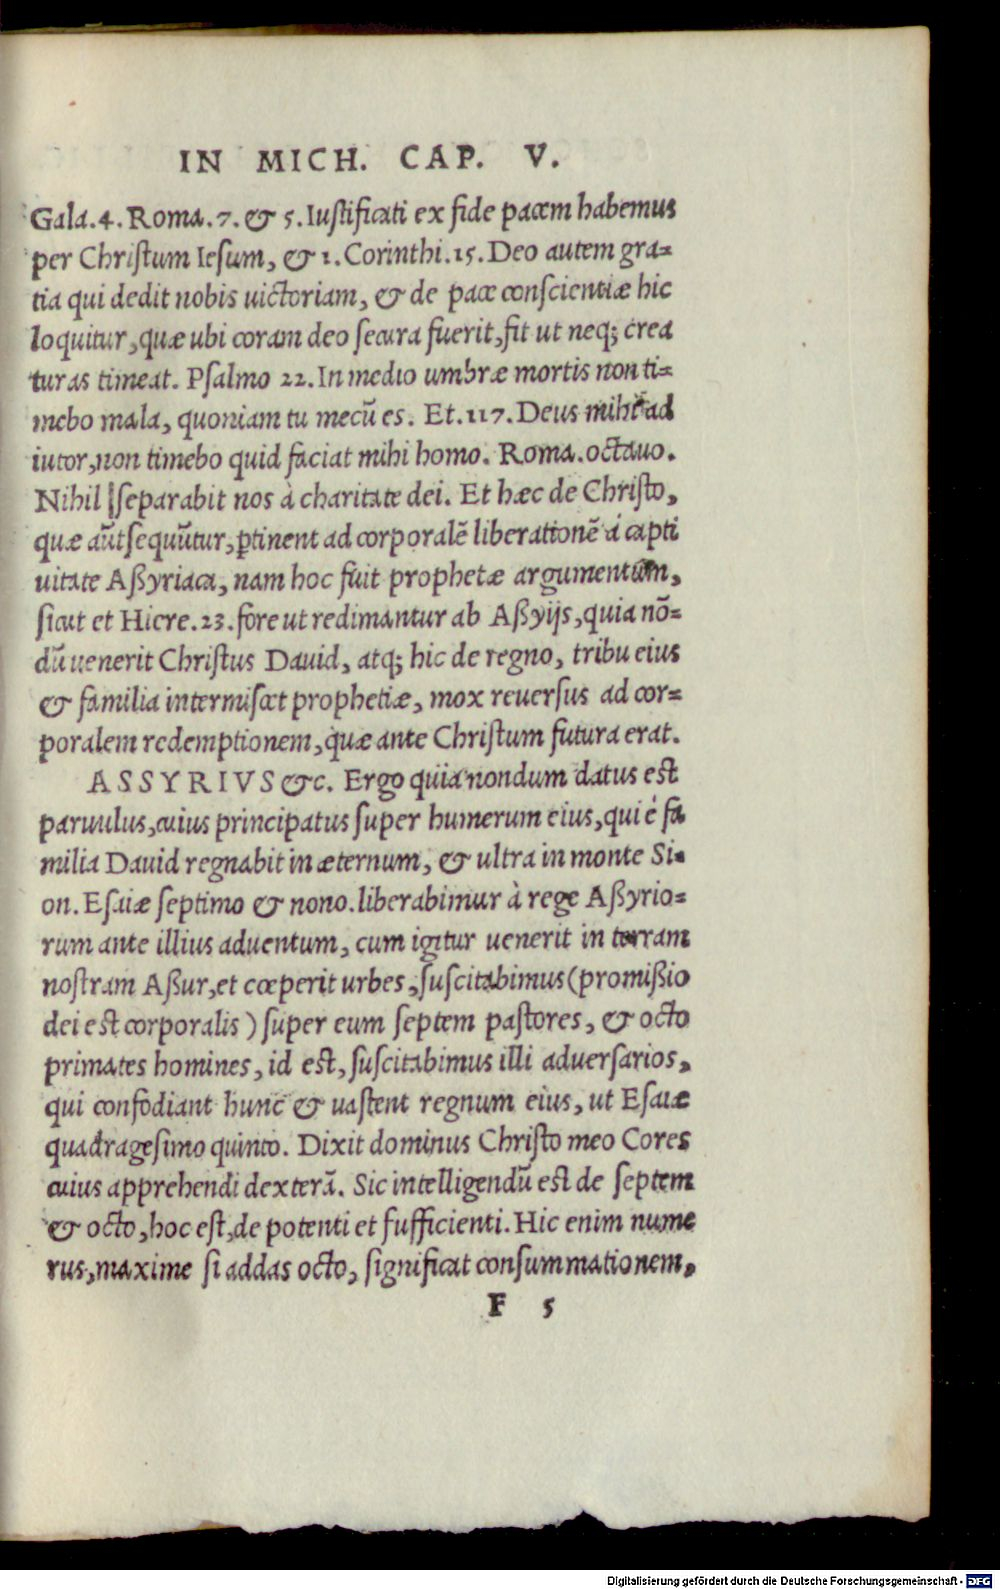 IN MICH. CAP. V.
Gala.4. Roma.7. & 5. Iustificati ex fide pacem habemus
per Christum Iesum, & 1. Corinthi.15. Deo autem gra=
tia qui dedit nobis uictoriam, & de pace conscientiæ hic
loquitur, quæ ubi coram deo secura fuerit, fit ut neq; crea
turas timeat. Psalmo 22. In medio umbræ mortis non ti=
mebo mala, quoniam tu mecū es. Et.117. Deus mihi ad
iutor, non timebo quid faciat mihi homo. Roma.octauo.
Nihil separabit nos à charitate dei. Et hæc de Christo,
quæ aūt sequūtur, ꝑtinent ad corporalē liberationē á capti
uitate Aßyriaca, nam hoc fuit prophetæ argumentum,
sicut et Hiere.23. fore ut redimantur ab Aßyijs, quia nō=
dū uenerit Christus Dauid, atq; hic de regno, tribu eius
& familia intermiscet prophetiæ, mox reuersus ad cor=
poralem redemptionem, quæ ante Christum futura erat.
ASSYRIVS &c. Ergo quia nondum datus est
paruulus, cuius principatus super humerum eius, qui é fa
milia Dauid regnabit in æternum, & ultra in monte Si=
on. Esaiæ septimo & nono. liberabimur à rege Aßyrio=
rum ante illius aduentum, cum igitur uenerit in terram
nostram Aßur, et cœperit urbes, suscitabimus (promißio
dei est corporalis) super eum septem pastores, & octo
primates homines, id est, suscitabimus illi aduersarios,
qui confodiant hunc & uastent regnum eius, ut Esaiæ
quadragesimo quinto. Dixit dominus Christo meo Cores
cuius apprehendi dexterā. Sic intelligendū est de septem
& octo, hoc est, de potenti et sufficienti. Hic enim nume
rus, maxime si addas octo, significat consummationem,
F 5
Digitalisierung gefördert durch die Deutsche Forschungsgemeinschaft - DFG